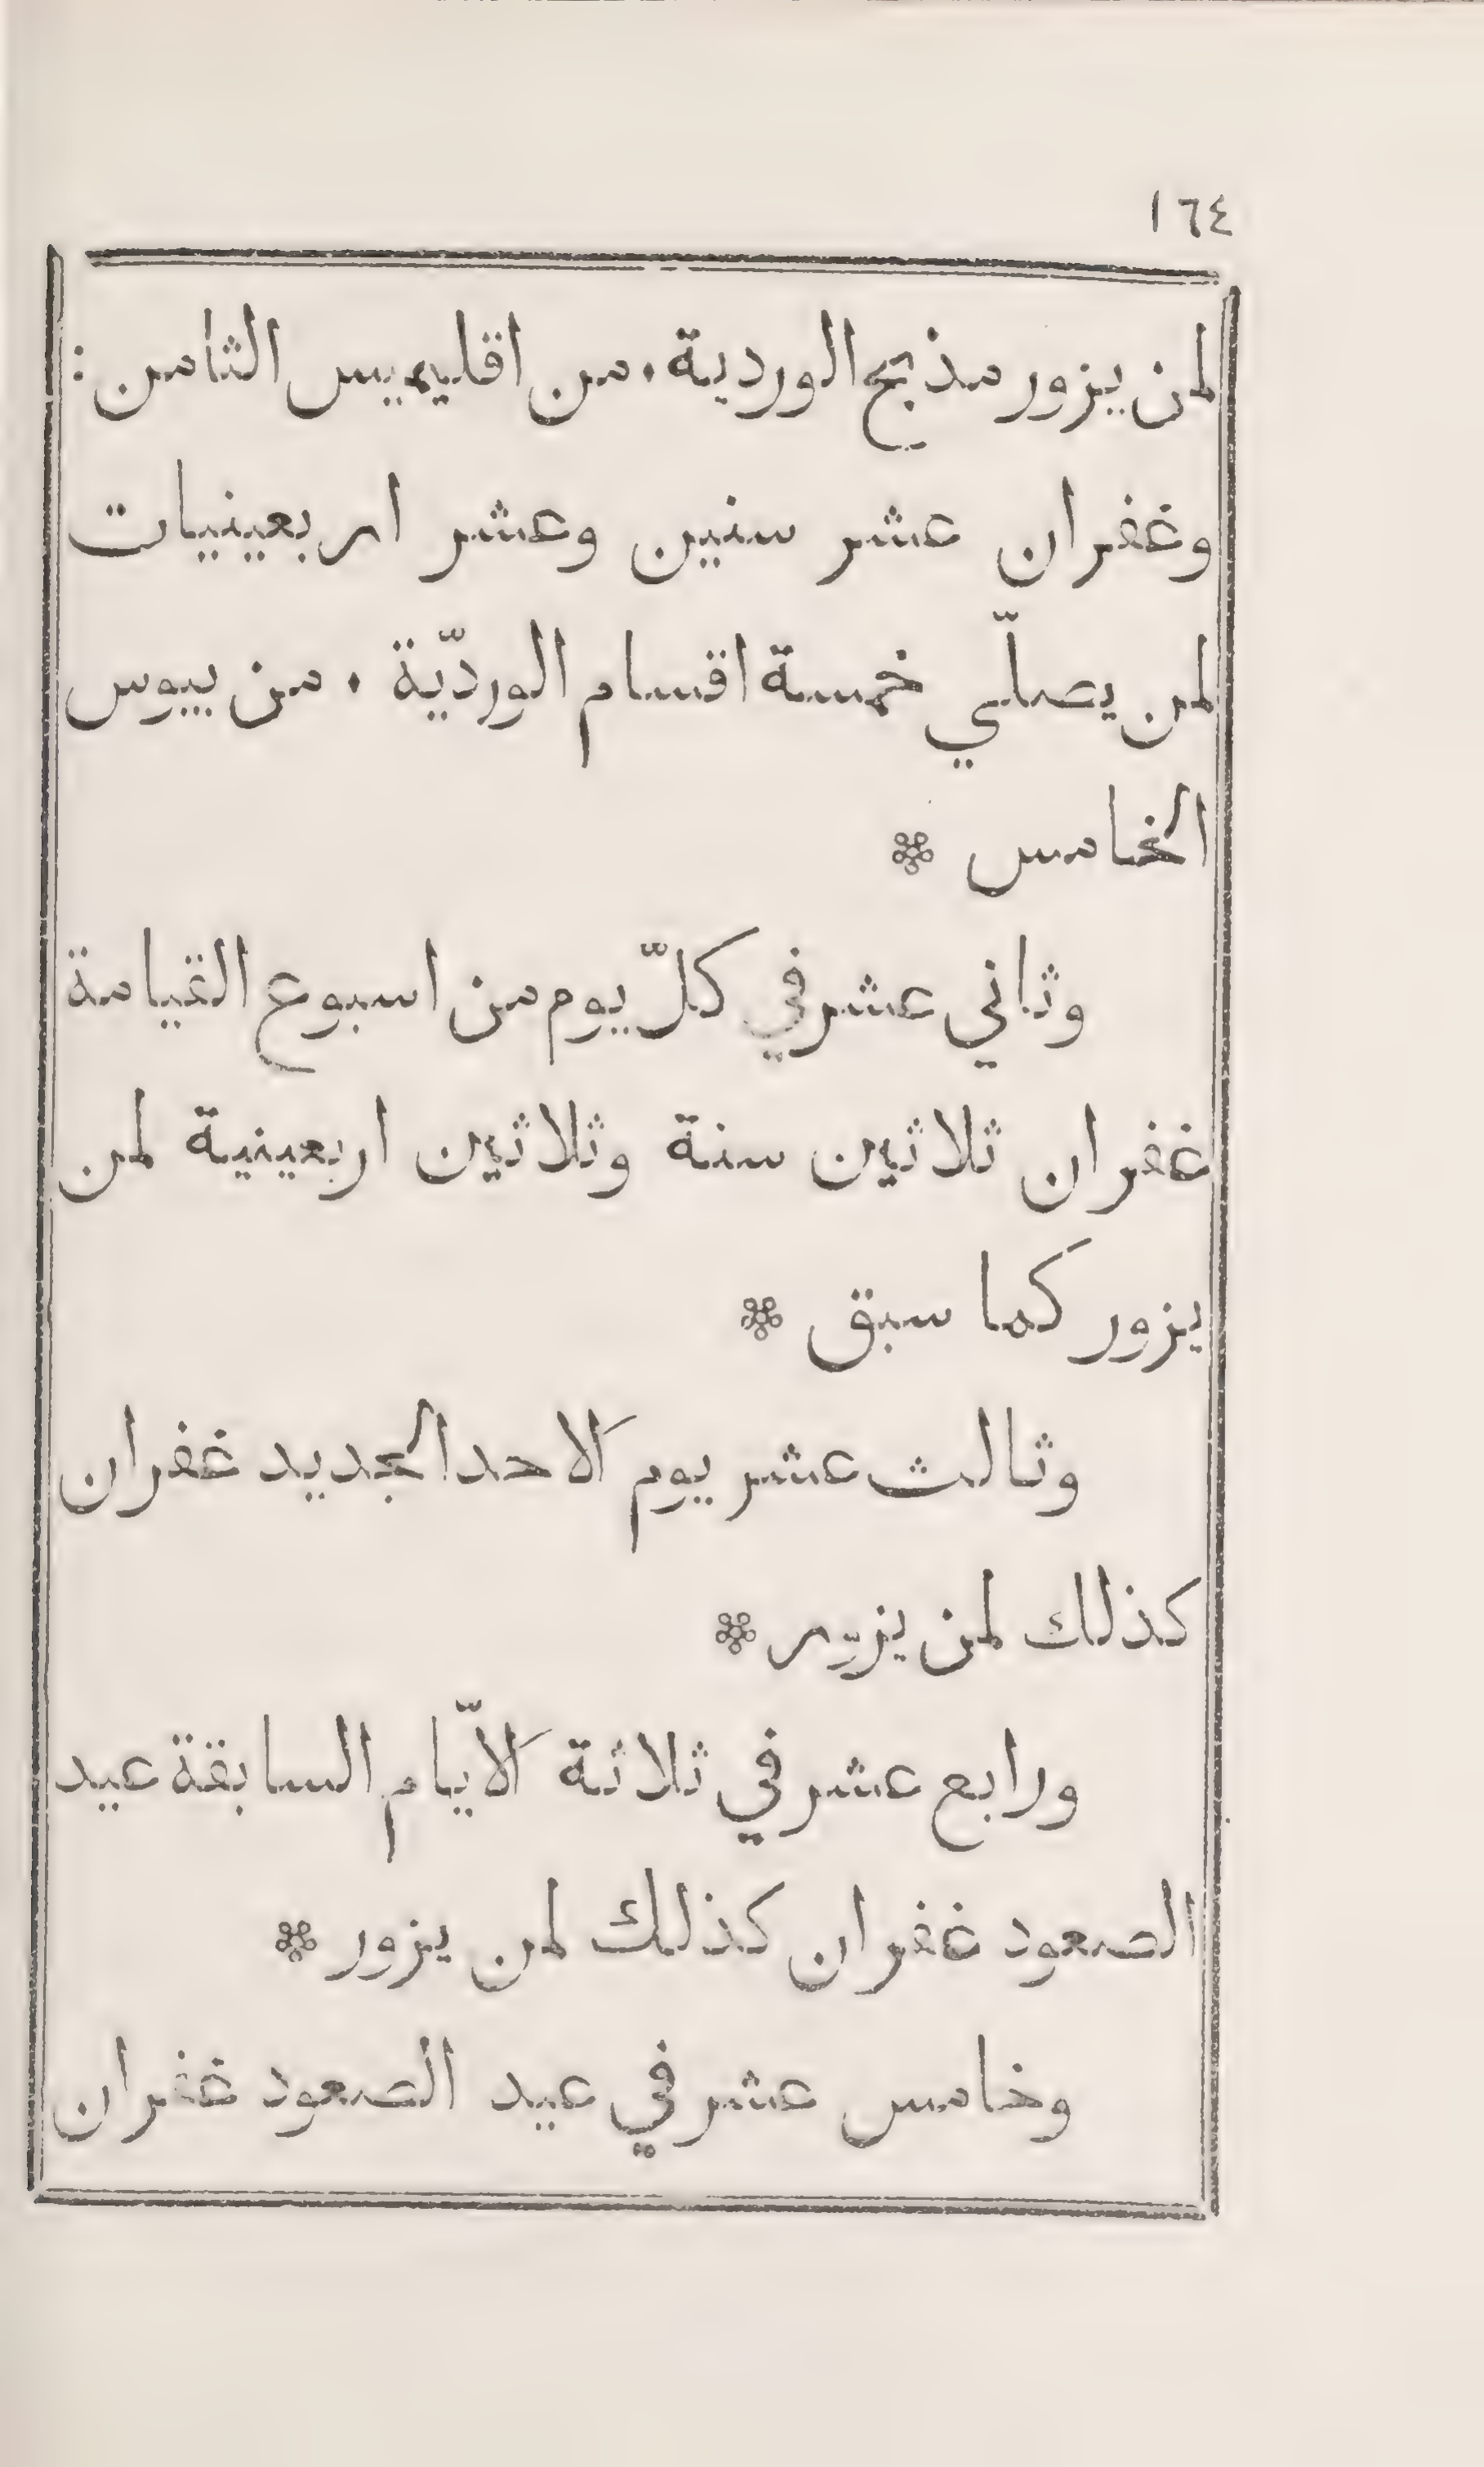 ١٦٤
لمن يزور مذبح الوردية، من اقليميس الثامن:
وغفران عشر سنين وعشر اربعينيات
لمن يصلّي خمسة اقسام الورديّة ، من بيوس
الخامس ❊
وثاني عشر في كلّ يوم من اسبوع القيامة
غفران ثلاثين سنة وثلاثين اربعينية لمن
يزور كما سبق ❊
وثالث عشر يوم الاحد الجديد غفران
كذلك لمن يزور ❊
ورابع عشر في ثلاثة الايّام السابقة عيد
الصعود غفران كذلك لمن يزور ❊
وخامس عشر في عيد الصعود غفران